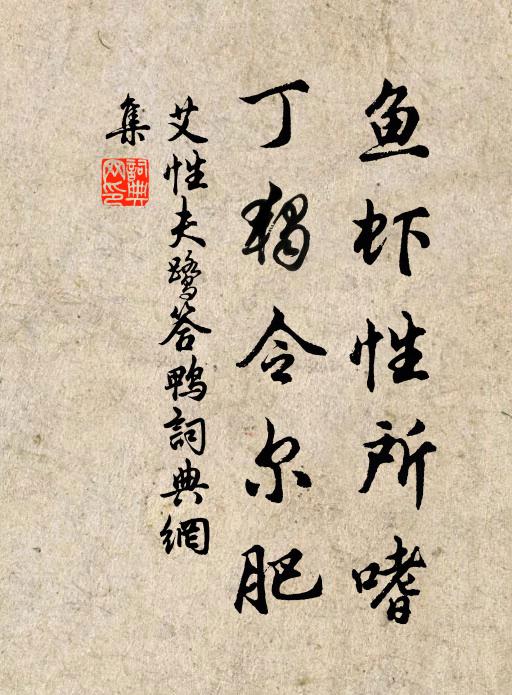 鱼虾性所嗜
丁独令尔肥
艾性夫鹭答鸭詞典網
集
詞典網印